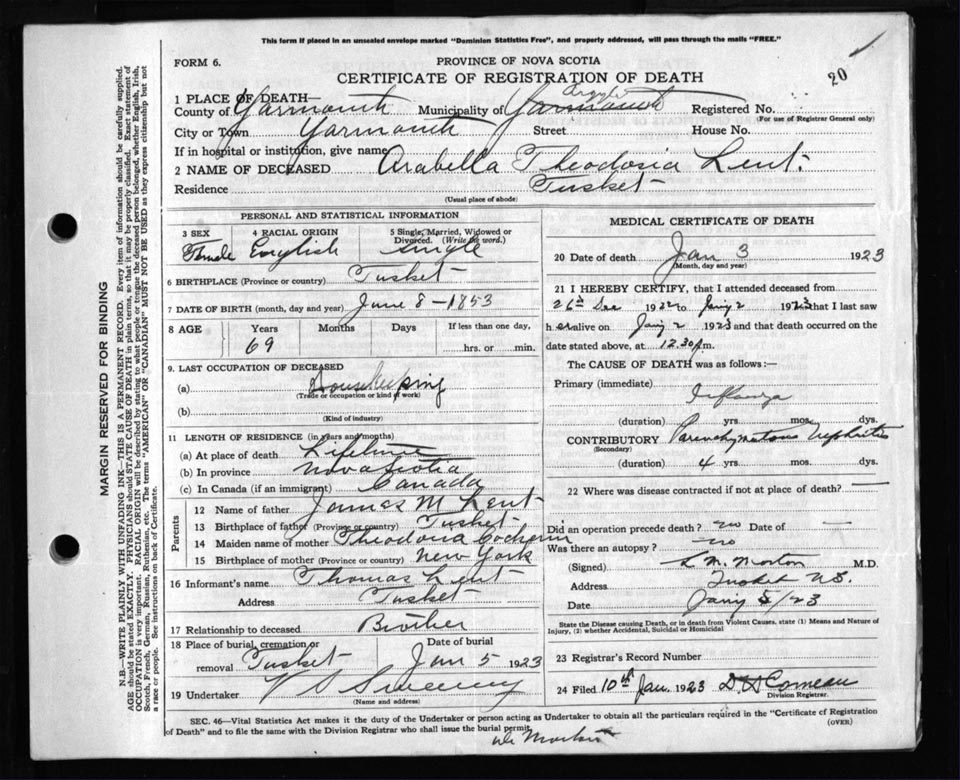 This form if placed in an unsealed envelope marked "Dominion Statistics Free", and properly addressed, will pass through the mails "FREE."
FORM 6.
PROVINCE OF NOVA SCOTIA
20
CERTIFICATE OF REGISTRATION OF DEATH
1 PLACE OF DEATH—
Argyle
County of Yarmouth Municipality of Yarmouth Registered No.
(For use of Registrar General only)
City or Town Yarmouth Street House No.
If in hospital or institution, give name
2 NAME OF DECEASED Arabella Theodosia Lent.
Residence Tusket
(Usual place of abode)
PERSONAL AND STATISTICAL INFORMATION
3 SEX 4 RACIAL ORIGIN 5 Single, Married, Widowed or Divorced. (Write the word.)
Female English single
6 BIRTHPLACE (Province or country) Tusket
7 DATE OF BIRTH (month, day and year) June 8-1853
8 AGE Years Months Days If less than one day,
69 hrs. or min.
9. LAST OCCUPATION OF DECEASED
(a) Housekeeping
(Trade or occupation or kind of work)
(b)
(Kind of industry)
11 LENGTH OF RESIDENCE (in years and months)
(a) At place of death Lifetime
(b) In province Nova Scotia
(c) In Canada (if an immigrant) Canada
Parents
12 Name of father James M Lent
13 Birthplace of father (Province or country) Tusket
14 Maiden name of mother Theodosia
15 Birthplace of mother (Province or country) New York
16 Informant's name Thomas Lent
Address Tusket
17 Relationship to deceased Brother
18 Place of burial, cremation or removal Tusket Date of burial Jan 5 1923
19 Undertaker V S Sweeny
(Name and address)
MEDICAL CERTIFICATE OF DEATH
20 Date of death Jan 3 1923
(Month, day and year)
21 I HEREBY CERTIFY, that I attended deceased from
26th Dec 1922 to Jany 2 1923 that I last saw
h er alive on Jany 2 1923 and that death occurred on
date stated above, at 12.30 p.m.
The CAUSE OF DEATH was as follows:—
Primary (immediate)
Influenza
(duration) yrs. mos. dys.
CONTRIBUTORY Parenchymatous Nephritis
(Secondary)
(duration) 4 yrs. mos. dys.
22 Where was disease contracted if not at place of death? —
Did an operation precede death? no Date of —
Was there an autopsy? no
(Signed) L. M. Morton M.D.
Address Tusket N.S.
Date Jany 5/23
State the Disease causing Death, or in death from Violent Causes, state (1) Means and Nature of Injury, (2) whether Accidental, Suicidal or Homicidal
23 Registrar's Record Number
24 Filed 10th Jan. 1923 D. H Comeau
Division Registrar.
SEC. 46—Vital Statistics Act makes it the duty of the Undertaker or person acting as Undertaker to obtain all the particulars required in the "Certificate of Registration
of Death" and to file the same with the Division Registrar who shall issue the burial permit. (OVER)
MARGIN RESERVED FOR BINDING
N.B.—WRITE PLAINLY WITH UNFADING INK—THIS IS A PERMANENT RECORD. Every item of information should be carefully supplied.
AGE should be stated EXACTLY. PHYSICIANS should STATE CAUSE OF DEATH in plain terms, so that it may be properly classified. Exact statement of
OCCUPATION is very important. RACIAL ORIGIN will be described by stating to what people or tongue the deceased person belonged, whether English, Irish,
Scotch, French, German, Russian, Ruthenian, etc. The terms "AMERICAN" OR "CANADIAN" MUST NOT BE USED as they express citizenship but not
a race or people. See instructions on back of Certificate.